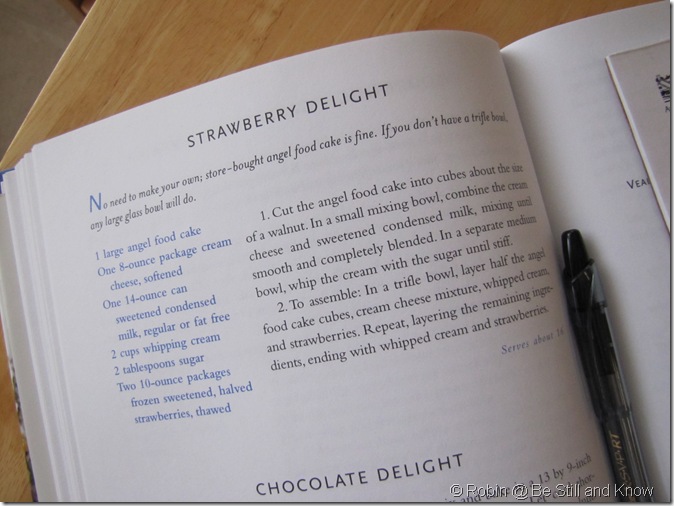 STRAWBERRY DELIGHT
No need to make your own; store-bought angel food cake is fine. If you don't have a trifle bowl,
any large glass bowl will do.
1 large angel food cake
One 8-ounce package cream
cheese, softened
One 14-ounce can
sweetened condensed
milk, regular or fat free
2 cups whipping cream
2 tablespoons sugar
Two 10-ounce packages
frozen sweetened, halved
strawberries, thawed
1. Cut the angel food cake into cubes about the size
of a walnut. In a small mixing bowl, combine the cream
cheese and sweetened condensed milk, mixing until
smooth and completely blended. In a separate medium
bowl, whip the cream with the sugar until stiff.
2. To assemble: In a trifle bowl, layer half the angel
food cake cubes, cream cheese mixture, whipped cream,
and strawberries. Repeat, layering the remaining ingre-
dients, ending with whipped cream and strawberries.
Serves about 16
CHOCOLATE DELIGHT
13 by 9-inch
© Robin @ Be Still and Know